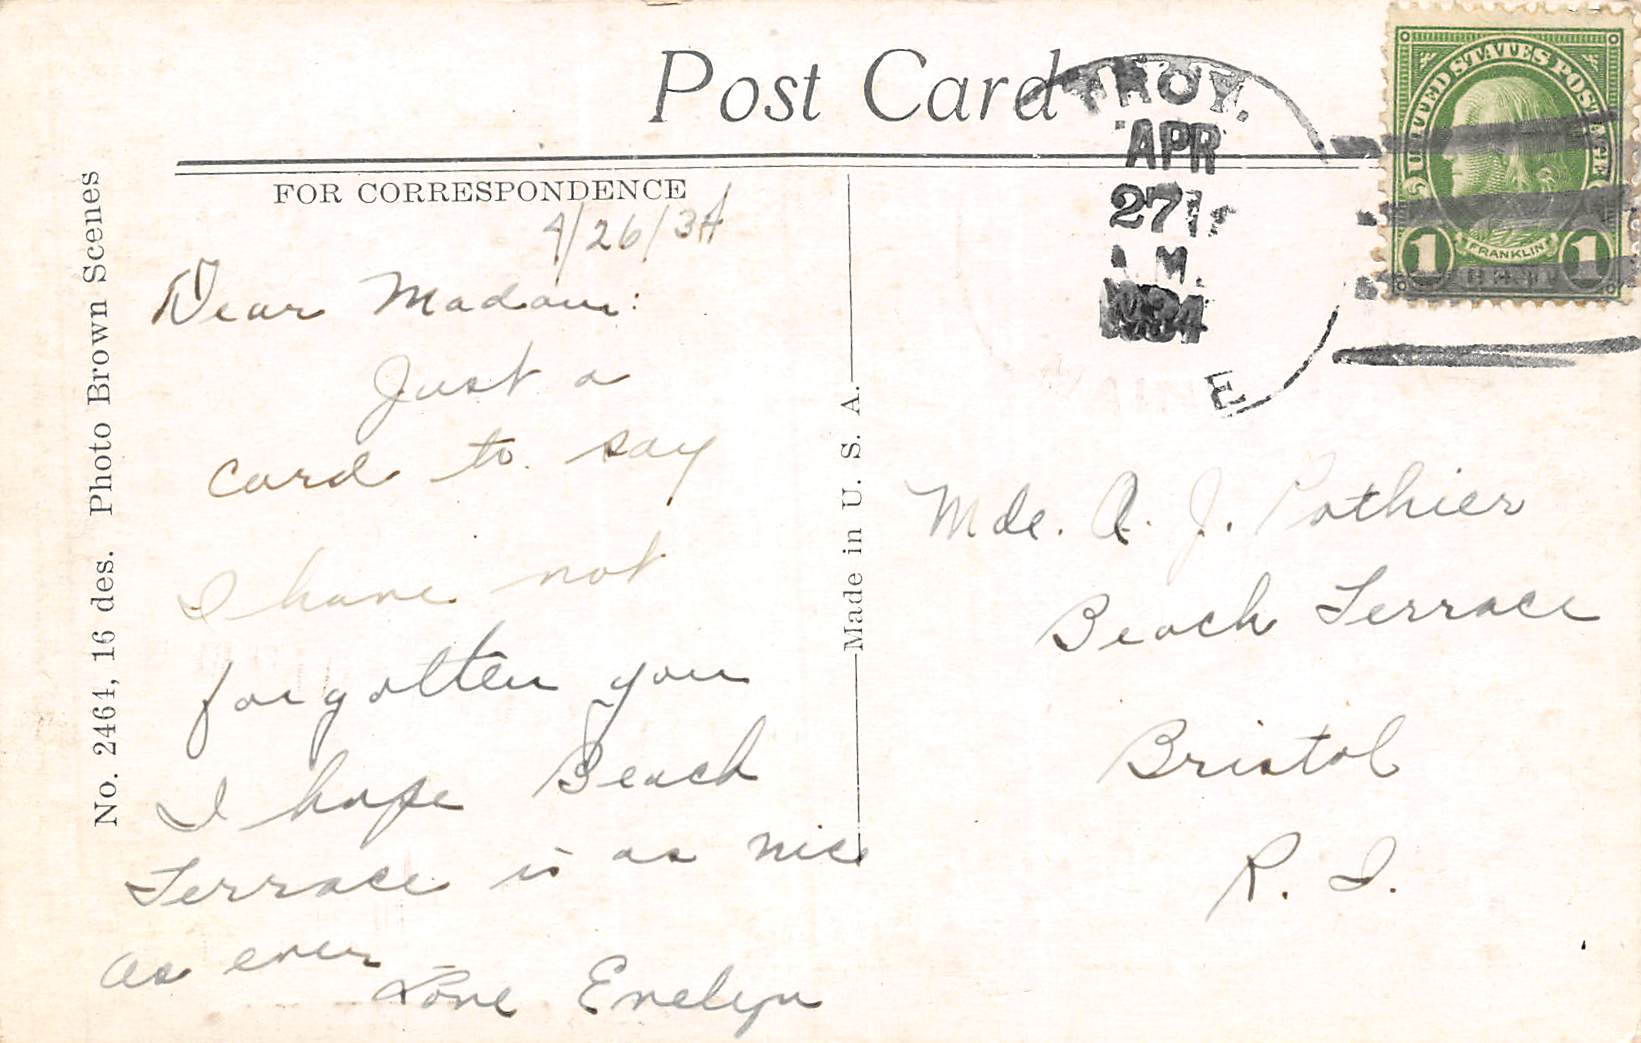 Post Card
FOR CORRESPONDENCE
4/26/34
Dear Madam:
Just a
card to say
I have not
forgotten you
I hope Beach
Terrace is as nice
as ever
Love Evelyn
No. 2464, 16 des. Photo Brown Scenes
Made in U. S. A.
TROY.
APR
27
M.
1934
E
UNITED STATES POSTAGE
FRANKLIN
1 1
Mde. A. J. Pothier
Beach Terrace
Bristol
R. I.